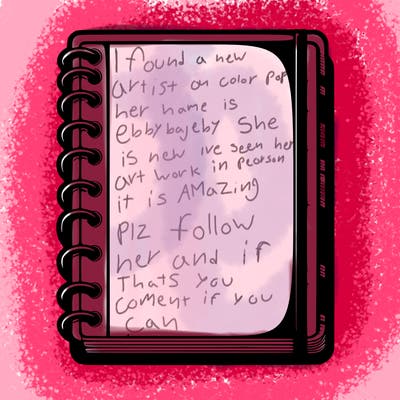 I found a new
artist on color pop
her name is
ebbybajeby She
is new ive seen her
art work in pearson
it is AMazing
Plz follow
her and if
Thats you
coment if you
can